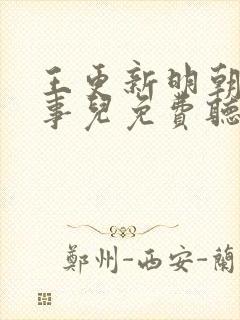 王更新明朝
事兒免費聽
鄭州-西安-蘭